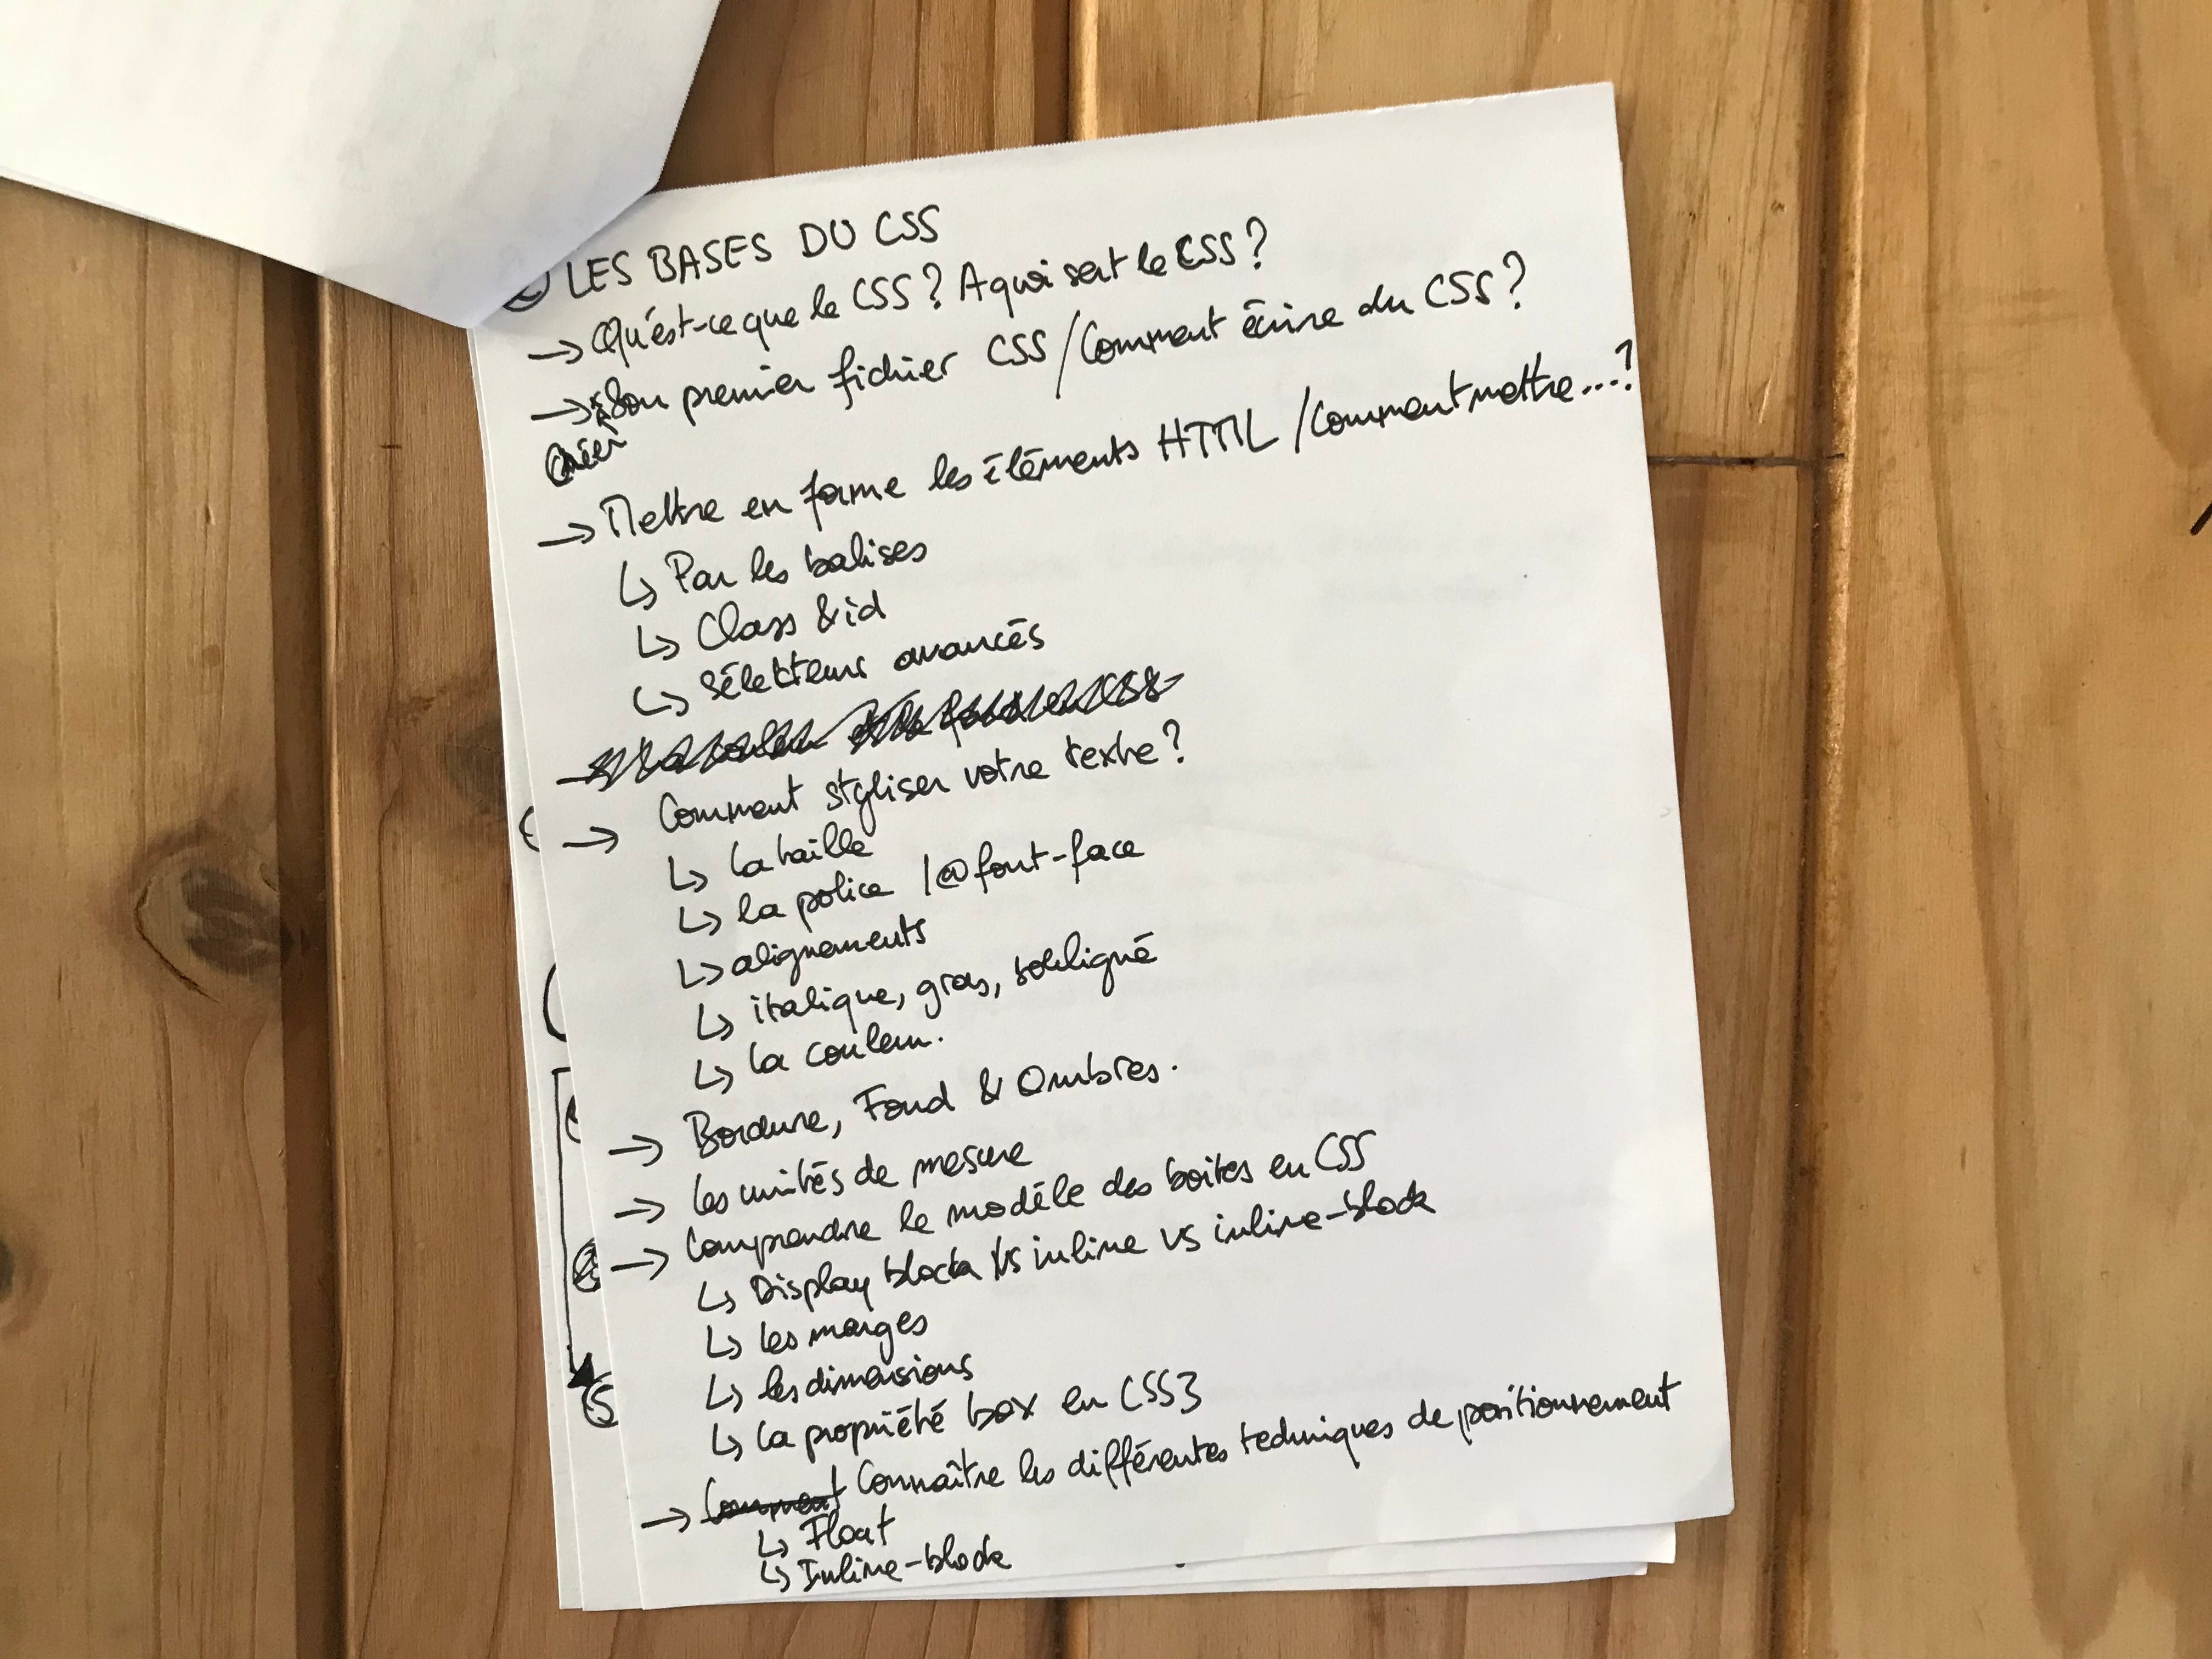 LES BASES DU CSS
→ Qu'est-ce que le CSS ? A quoi sert le CSS ?
→ Son premier fichier CSS / Comment écrire du CSS ?
Créer
→ Mettre en forme les éléments HTML / Comment mettre...?
↳ Par les balises
↳ Class & id
↳ Sélecteurs avancés
→ Comment styliser votre texte ?
↳ la taille
↳ la police / @font-face
↳ alignements
↳ italique, gras, souligné
↳ la couleur.
→ Bordure, Fond & Ombres.
→ les unités de mesure
→ Comprendre le modèle des boites en CSS
↳ Display block vs inline vs inline-block
↳ les marges
↳ les dimensions
↳ la propriété box en CSS3
→ Comment Connaître les différentes techniques de positionnement
↳ Float
↳ Inline-block